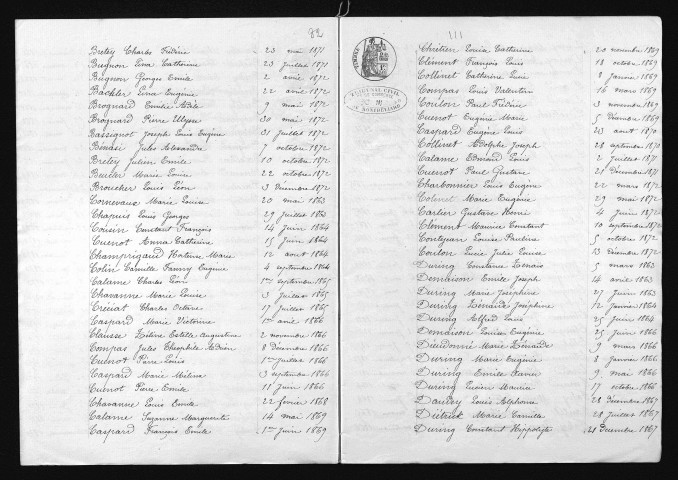 82
Bretey Charles Frédéric 23 mai 1871
Bugnon Anna Catherine 23 juillet 1871
Bugnon Georges Emile 2 avril 1872
Bachler Anna Eugénie 22 avril 1872
Brognard Emilie Adèle 9 mai 1872
Brognard Pierre Ulysse 30 mai 1872
Bassignot Joseph Louis Eugène 31 juillet 1872
Bénasi Jules Alexandre 7 octobre 1872
Bretey Julien Emile 10 octobre 1872
Beucler Marie Louise 22 octobre 1872
Broucher Louis Léon 3 décembre 1872
Cornevaux Marie Louise 20 mai 1863
Chapuis Louis Georges 29 juillet 1863
Cousin Constant François 14 juin 1864
Cuenot Anna Catherine 15 juin 1864
Champrigaud Marie 12 août 1864
Colin Camille Fanny Eugénie 4 septembre 1864
Calame Charles Léon 1er septembre 1865
Chavanne Marie Louise 3 juillet 1865
Créciat Charles Octave 17 juillet 1865
Caspard Marie Victorine 1er avril 1866
Clausse Hélène Estelle Augustine 2 novembre 1866
Compas Jules Théophile Adrien 8 décembre 1866
Cuenot Pierre Louis 1er juillet 1866
Caspard Marie Méline 3 septembre 1866
Cuenot Pierre Emile 11 juin 1866
Chavanne Louis Emile 22 février 1868
Calame Suzanne Marguerite 14 mai 1869
Caspard François Emile 1er juin 1869
111
TRIBUNAL CIVIL
MONTBÉLIARD
Chrétien Louise Catherine 20 novembre 1869
Clément François Louis 18 octobre 1869
Collinet Catherine Lucie 8 janvier 1869
Compas Louis Valentin 16 mars 1869
Coulon Paul Frédéric 3 novembre 1869
Cuenot Eugénie Marie 5 décembre 1869
Caspard Eugène Louis 23 août 1870
Collinet Adolphe Joseph 28 septembre 1870
Calame Edmond Louis 2 juillet 1871
Cuenot Paul Gustave 21 décembre 1871
Charbonnier Louis Eugène 22 mars 1872
Colinet Marie Eugénie 29 mai 1872
Carlier Gustave Henri 4 juin 1872
Clément Maurice Constant 10 septembre 1872
Contejean Louise Pauline 5 octobre 1872
Coulon Lucie Julie Louise 13 décembre 1872
During Constance 5 mars 1863
Demaison Emile Joseph 14 avril 1863
During Marie Joséphine 27 juin 1863
During Zénaïde Joséphine 12 janvier 1864
During Alfred Louis 25 juin 1864
Demaison Louise Eugénie 25 juin 1866
Dieudonné Marie Zénaïde 9 mars 1866
During Marie Eugénie 8 janvier 1866
During Emile Xavier 9 mai 1866
During Lucien Maurice 17 octobre 1866
Daudey Louis Alphonse 28 décembre 1867
Dietrich Marie Camille 28 juillet 1867
During Constant Hippolyte 21 décembre 1867